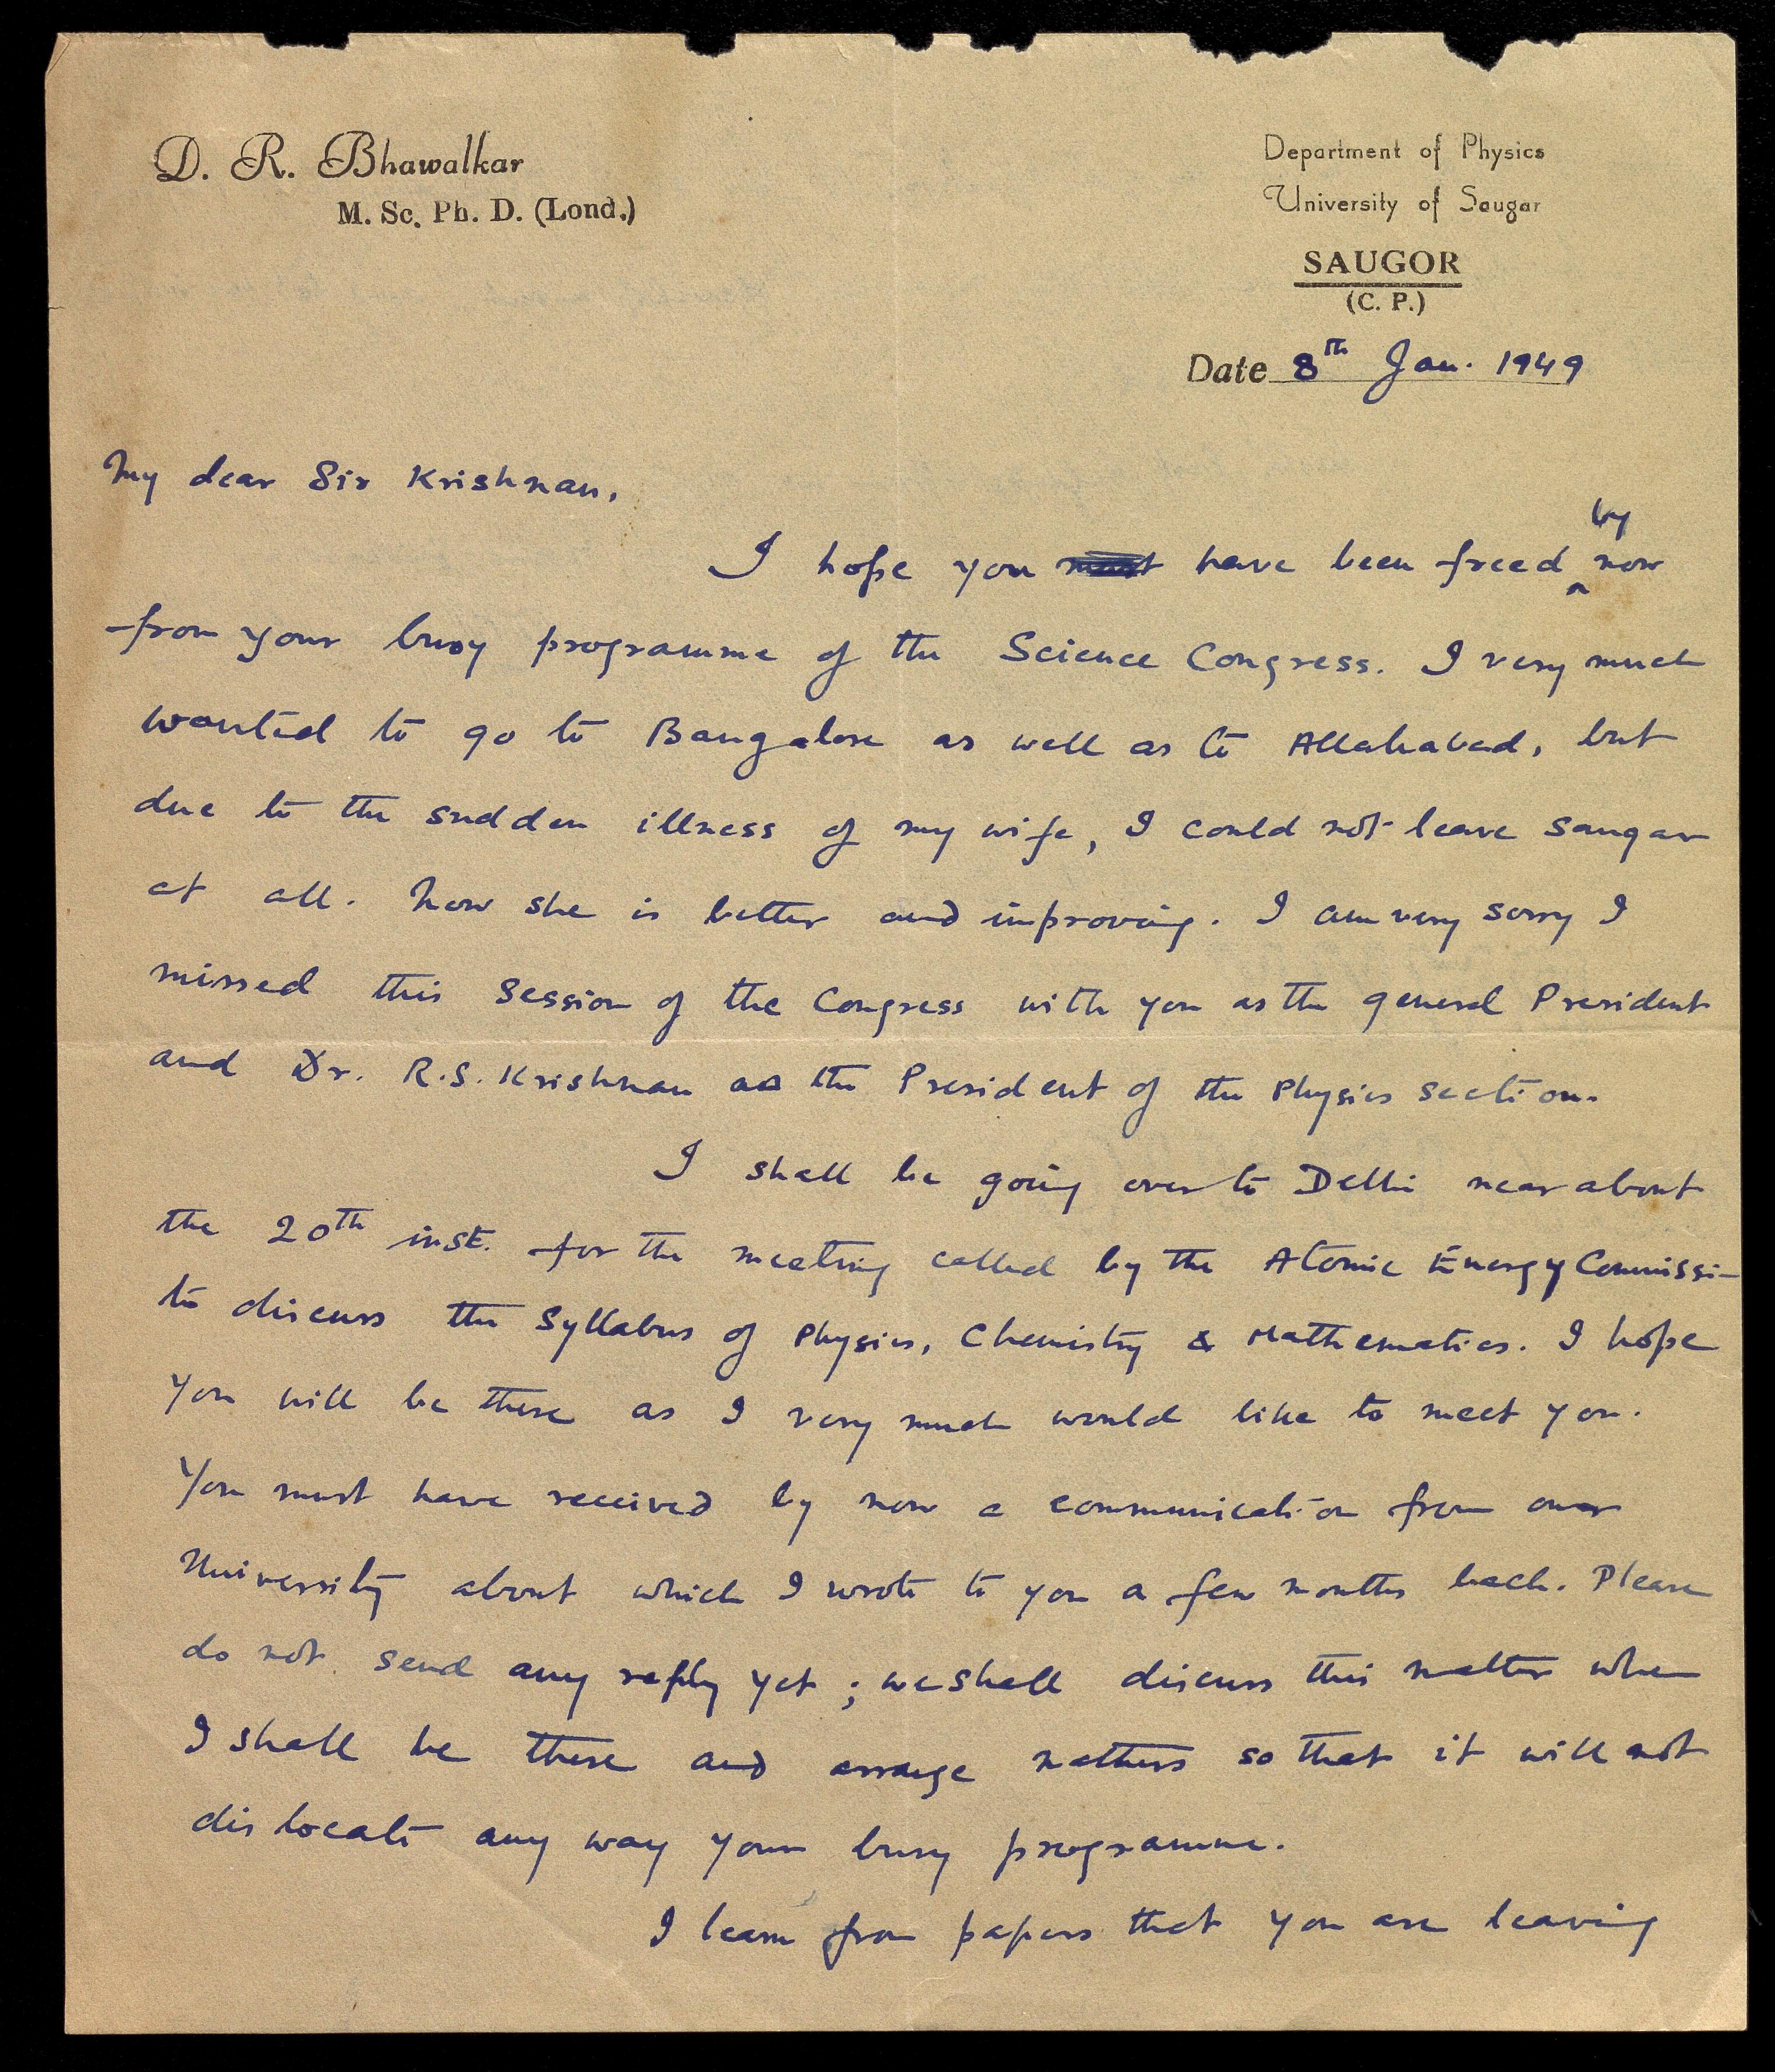 D. R. Bhawalkar
M. Sc. Ph. D. (Lond.)
Department of Physics
University of Saugar
SAUGOR
(C. P.)
Date 8th Jan. 1949
My dear Sir Krishnan,
I hope you have been freed by now
from your busy programme of the Science Congress. I very much
wanted to go to Bangalore as well as to Allahabad, but
due to the sudden illness of my wife, I could not leave Saugar
at all. Now she is better and improving. I am very sorry I
missed this Session of the Congress with you as the general President
and Dr. R.S. Krishnan as the President of the Physics section.
I shall be going over to Delhi near about
the 20th inst. for the meeting called by the Atomic Energy Commissi-
to discuss the Syllabus of Physics, Chemistry & Mathematics. I hope
you will be there as I very much would like to meet you.
You must have received by now a communication from our
University about which I wrote to you a few months back. Please
do not send any reply yet ; we shall discuss this matter when
I shall be there and arrange matters so that it will not
dislocate any way your busy programme.
I learn from papers that you are leaving